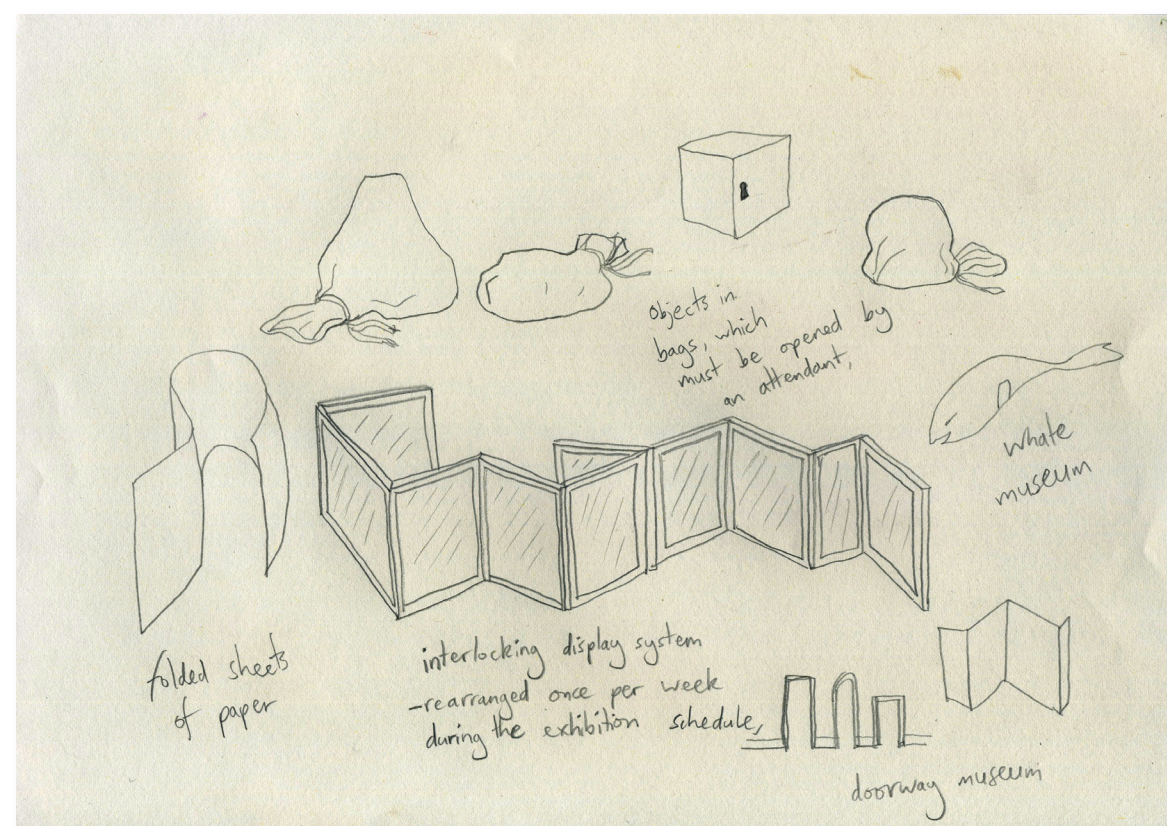 objects in
bags, which
must be opened by
an attendant,
whale
museum
folded sheets
of paper
interlocking display system
-rearranged once per week
during the exhibition schedule,
doorway museum